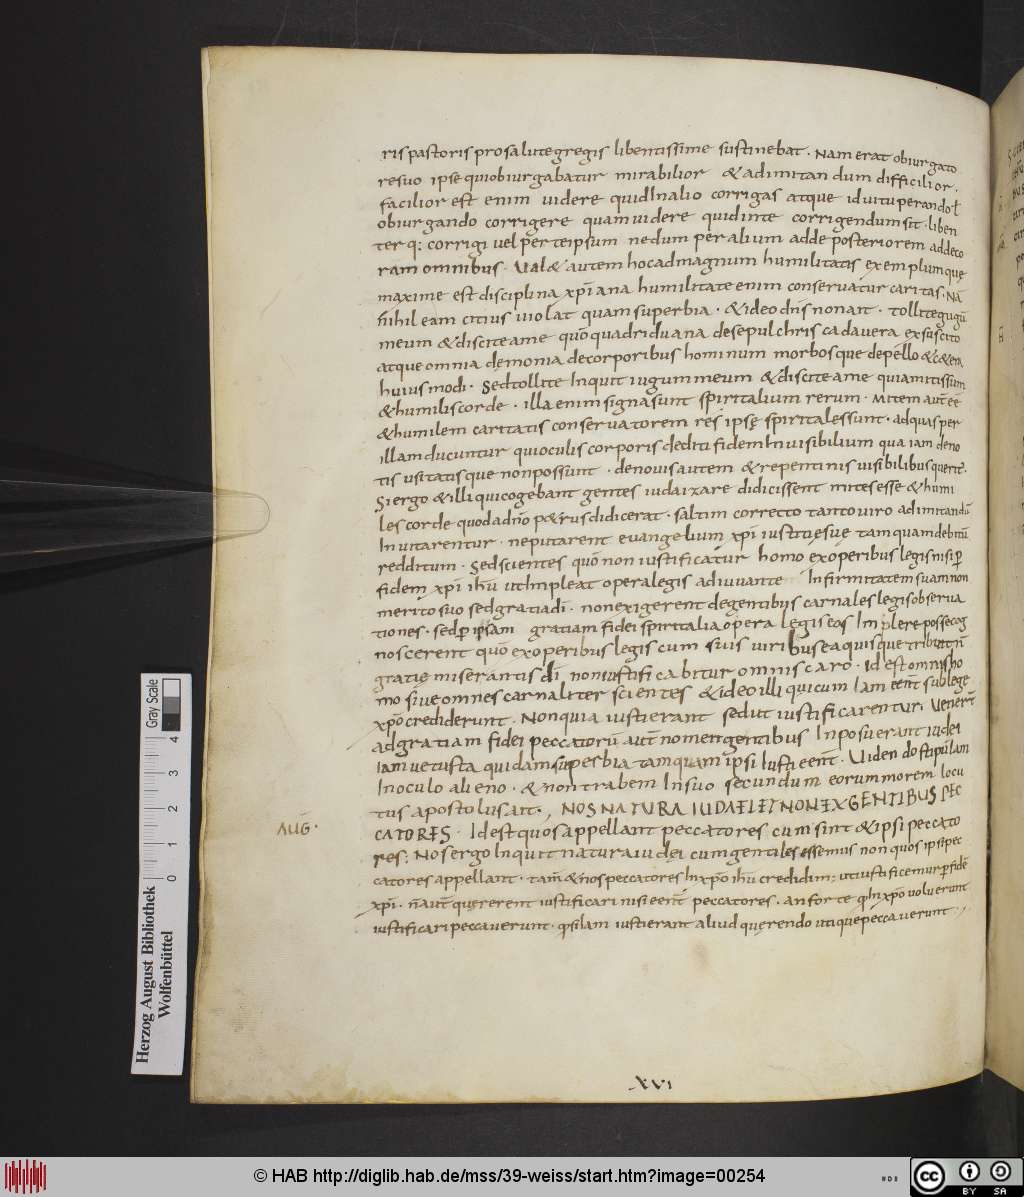 ris pastoris pro salute gregis libentissime sustinebat. Nam erat obiurgato
re suo ipse qui obiurgabatur mirabilior & ad imitandum difficilior.
facilior est enim videre quid In alio corrigas atque id vituperando ł
obiurgando corrigere quam videre quid in te corrigendum sit. liben
terq; corrigi vel per te ipsum nedum per alium adde posteriorem adde co
ram omnibus. Val& autem hoc ad magnum humilitatis exemplum quę
maxime est disciplina xp̄iana humilitate enim conservatur caritas. Nā
nihil eam citius violat quam superbia. & ideo dn̄s non ait. tollite iugū
meum & discite a me quō quadriduana de sepulchris cadavera exsuscito
atque omnia demonia de corporibus hominum morbosque depello & c&era
huiusmodi. Sed tollite Inquit iugum meum & discite a me quia mitis sum
& humilis corde. illa enim signa sunt spiritalium rerum. Mitem aut̄ eē
& humilem caritatis conservatorem res ipsę spiritales sunt. ad quas per
illam ducuntur qui oculis corporis dediti fidem Invisibilium quia iam de no
tis usitatisque non possunt. de novis autem & repentinis visibilibus querīt.
Si ergo & illi qui cogebant gentes iudaizare didicissent mites esse & humi
les corde quod a dn̄o p&rus didicerat. saltim correcto tanto viro ad imitandū
Invitarentur. ne putarent evangelium xp̄i iustitię suę tamquam debitū
redditum. Sed scientes quō non iustificatur homo ex operibus legis nisi p̄
fidem xp̄i ih̄u ut Impleat opera legis adiuvante Infirmitatem suam non
merito suo sed gratia dī. non exigerent de gentibus carnales legis observa
tiones. sed p̄ ipsam gratiam fidei spiritalia opera legis eos Implere posse cog
noscerent quō ex operibus legis cum suis viribus ea quisque tribuit n̄
gratię miserantis dī non iustificabitur omnis caro. id est omnis ho
mo sive omnes carnaliter scientes & ideo illi qui cum Iam eēnt sub lege
xp̄o crediderunt. Non quia iusti erant sed ut iustificarentur. venerī
ad gratiam fidei peccatorū aut̄ nomen gentibus Inposuerant iudei
Iam vetusta quidam superbia tamquam ipsi Iusti eēnt. Viden do stipulam
In oculo alieno. & non trabem In suo secundum eorum morem locu
tus apostolus ait. NOS NATURA IUDAEI ET NON EX GENTIBUS PEC
CATORES. Id est quos appellant peccatores cum sint & ipsi peccato
res; Nos ergo Inquit natura iudei cum gentiles essemus non quos ipsi pec
catores appellant. tam̄ & nos peccatores In xp̄o ih̄u credidim; ut iustificemur p̄ fidē
xp̄i. n̄ aut̄ quęrerent iustificari nisi eēnt peccatores. an forte q In xp̄o voluerunt
iustificari peccaverunt. q si Iam iusti erant aliud quęrendo utique peccaverunt.
AUG̅.
XVI
Herzog August Bibliothek
Wolfenbüttel
0 1 2 3 4
Gray Scale
© HAB http://diglib.hab.de/mss/39-weiss/start.htm?image=00254
cc BY SA